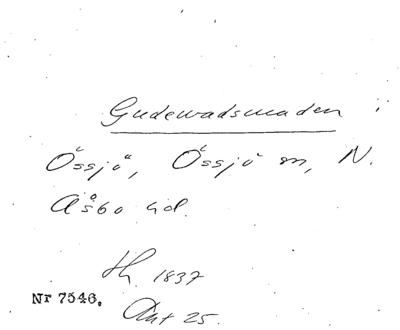 Gudewadsmaden
Össjö, Össjö sn, N.
Åsbo hd.
1837
Nr 7546.
Akt 25.